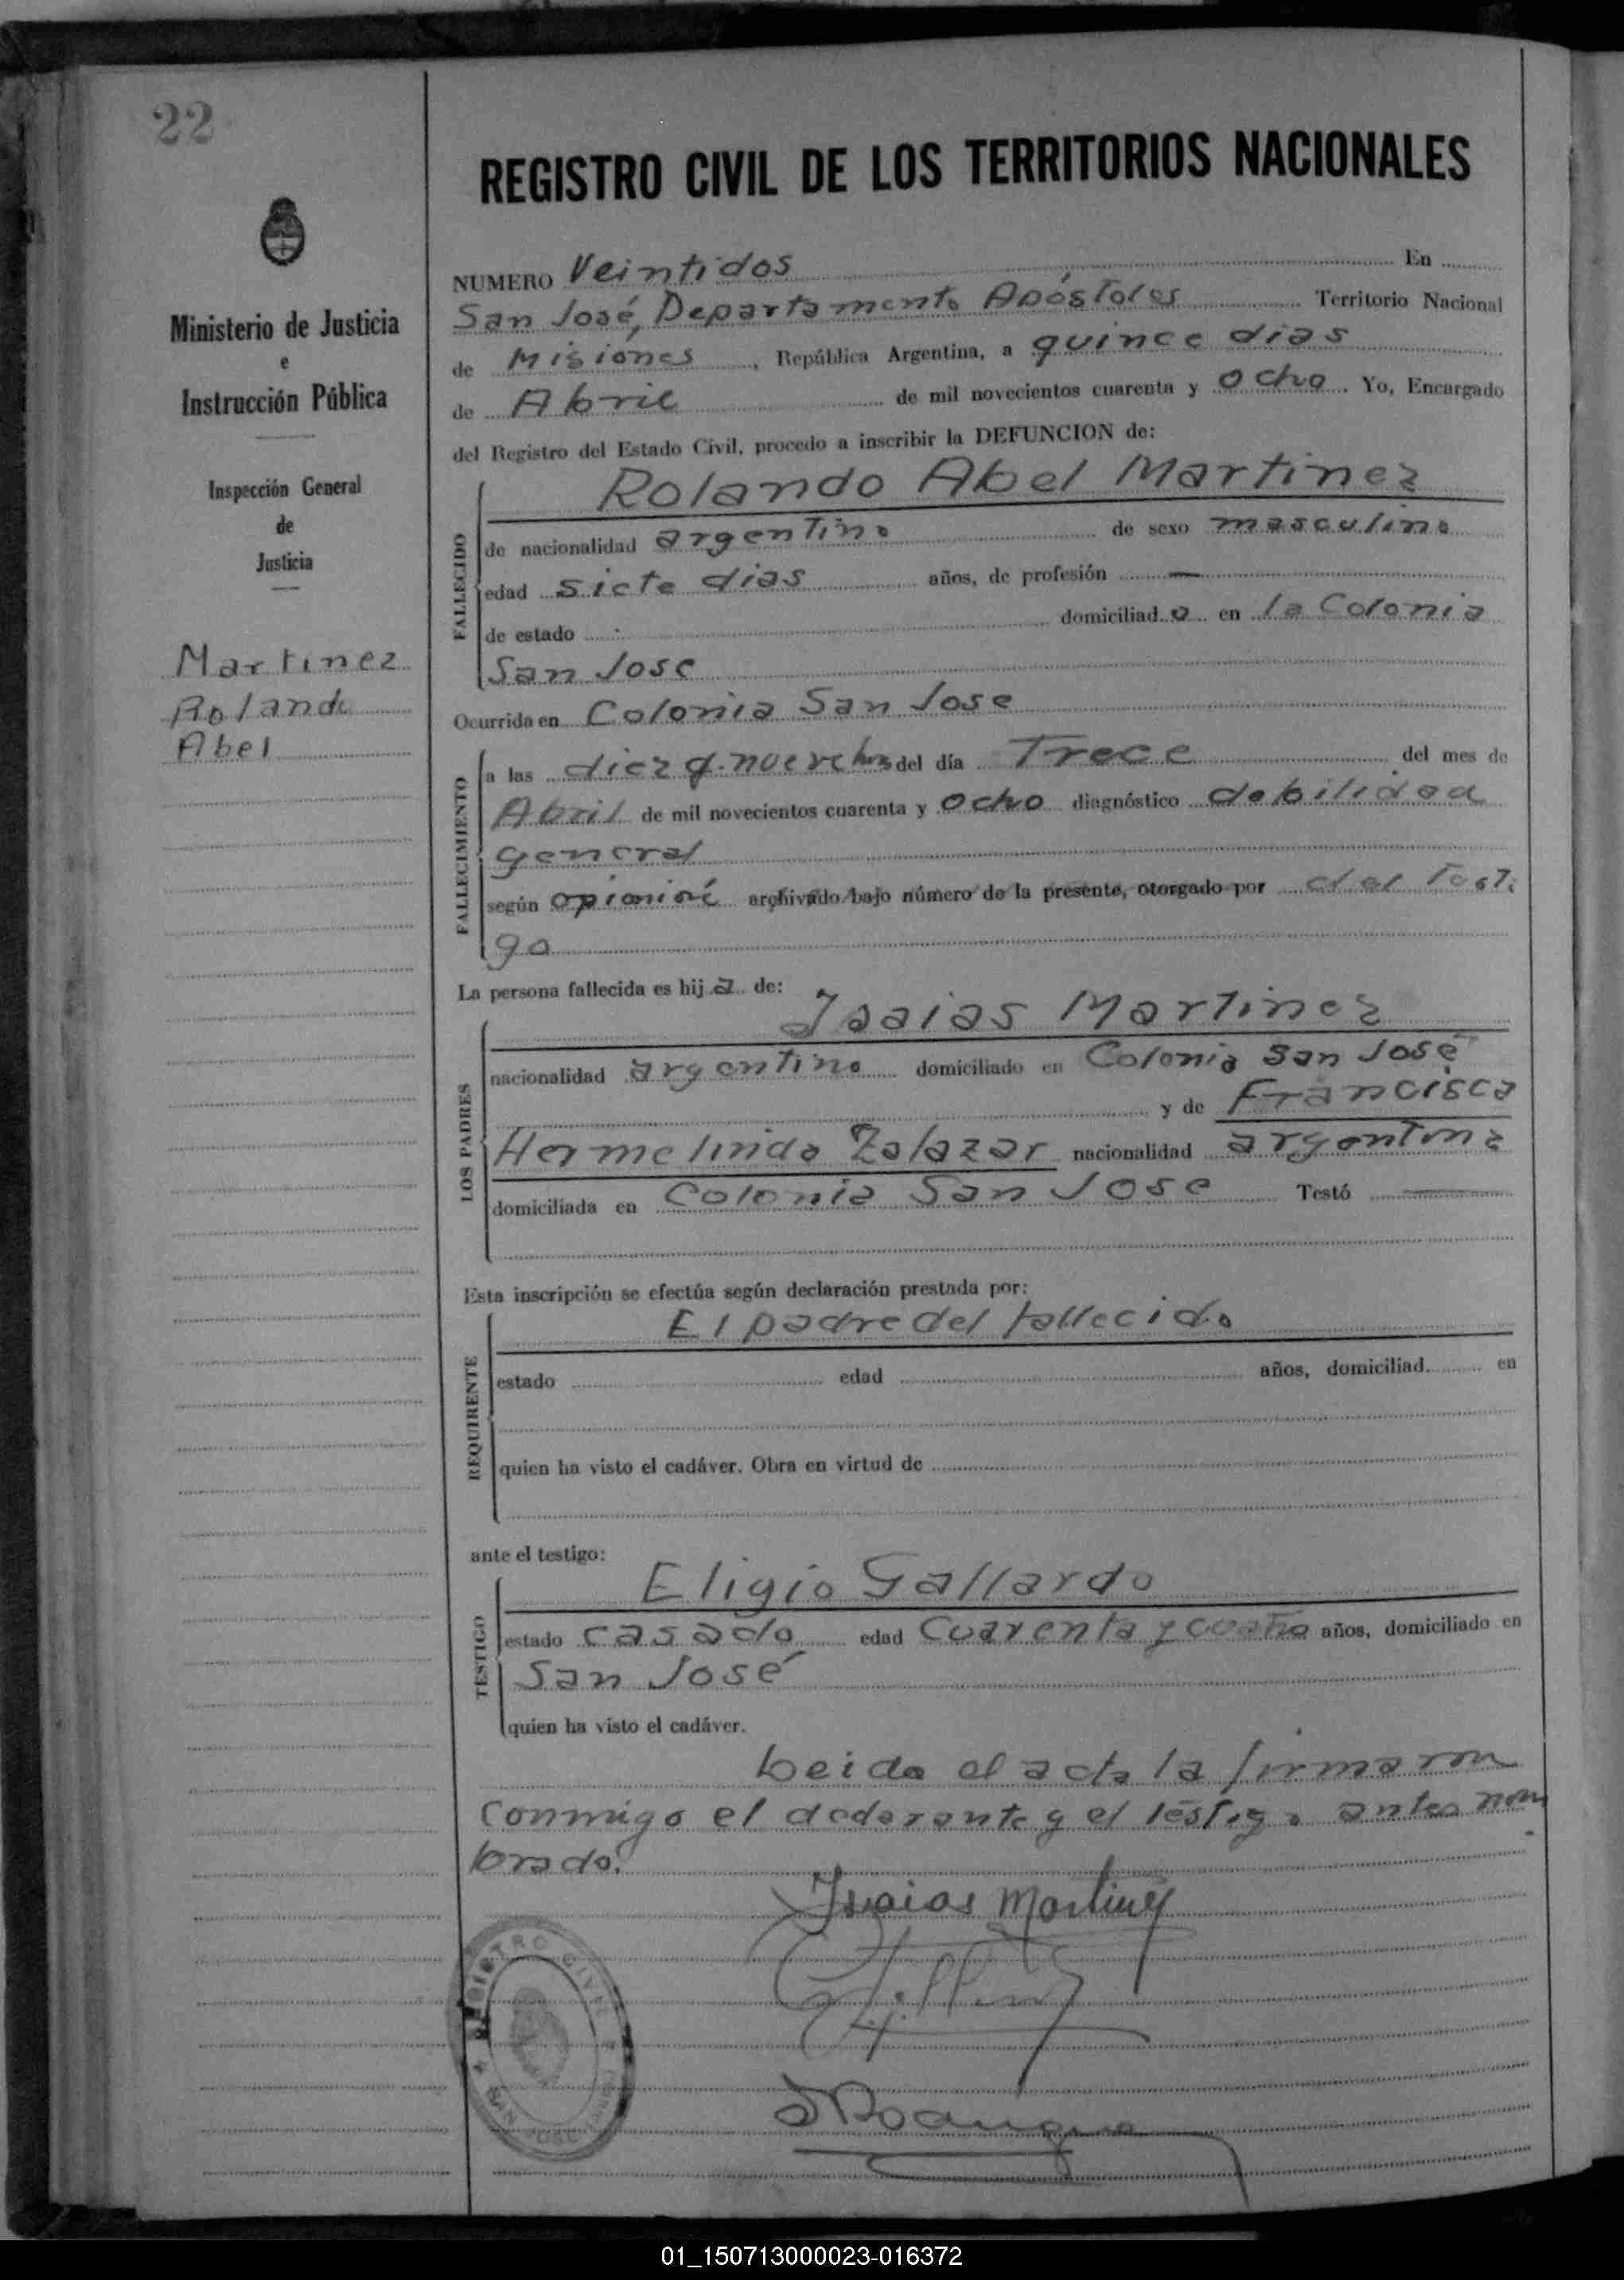 22
Ministerio de Justicia
e
Instrucción Pública
Inspección General
de
Justicia
Martinez
Rolando
Abel
REGISTRO CIVIL DE LOS TERRITORIOS NACIONALES
NUMERO Veintidos En
San José, Departamento Apóstoles Territorio Nacional
de Misiones, República Argentina, a quince dias
de Abril de mil novecientos cuarenta y ocho. Yo, Encargado
del Registro del Estado Civil, procedo a inscribir la DEFUNCION de:
Rolando Abel Martinez
FALLECIDO
de nacionalidad argentino de sexo masculino
edad siete dias años, de profesión —
de estado domiciliado en la Colonia
San Jose
Ocurrida en Colonia San Jose
FALLECIMIENTO
a las diez y nueve hrs del día Trece del mes de
Abril de mil novecientos cuarenta y ocho diagnóstico debilidad
general
según archivado bajo número de la presente, otorgado por del Testi
go
La persona fallecida es hija de:
Isaias Martinez
LOS PADRES
nacionalidad argentino domiciliado en Colonia San José
y de Francisca
Hermelinda Zalazar nacionalidad argentina
domiciliada en Colonia San Jose Testó —
Esta inscripción se efectúa según declaración prestada por:
El padre del fallecido
REQUIRENTE
estado edad años, domiciliad en
quien ha visto el cadáver. Obra en virtud de
ante el testigo:
Eligio Gallardo
TESTIGO
estado casado edad Cuarenta y cuatro años, domiciliado en
San José
quien ha visto el cadáver.
Leida el acta la firmaron
conmigo el declarante y el testigo antes nom
brado.
Isaias Martinez
REGISTRO CIVIL
SAN JOSE
01_150713000023-016372